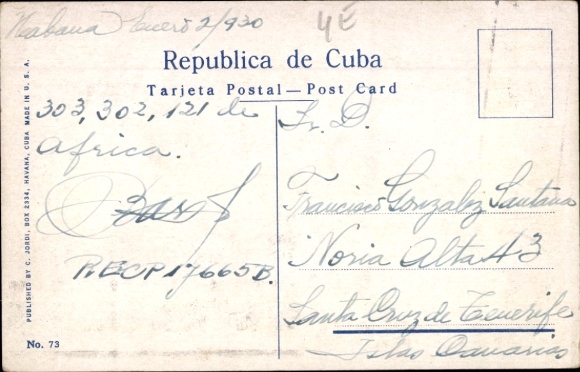 Habana Enero 2/930
4E
Republica de Cuba
Tarjeta Postal — Post Card
303, 302, 121 de
Africa.
RECP 17665B.
Sr. D.
Francisco Gonzalez Santana
Noria Alta 43
Santa Cruz de Tenerife
Islas Canarias
PUBLISHED BY C. JORDI, BOX 2334, HAVANA, CUBA MADE IN U. S. A.
No. 73